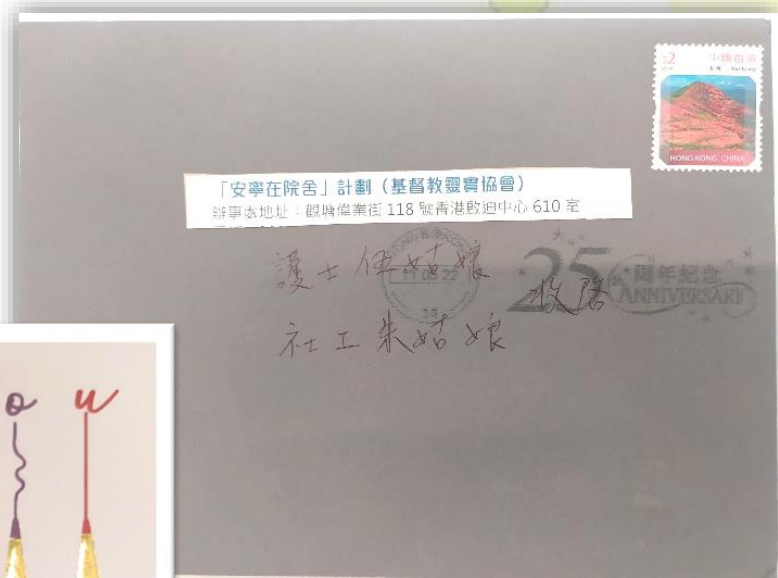 $2
中國香港
HONG KONG, CHINA
「安寧在院舍」計劃（基督教靈實協會）
辦事處地址：觀塘偉業街 118 號香港啟迪中心 610 室
護士伍姑娘
社工朱姑娘
收啓
22
25
周年紀念
ANNIVERSARY
o u